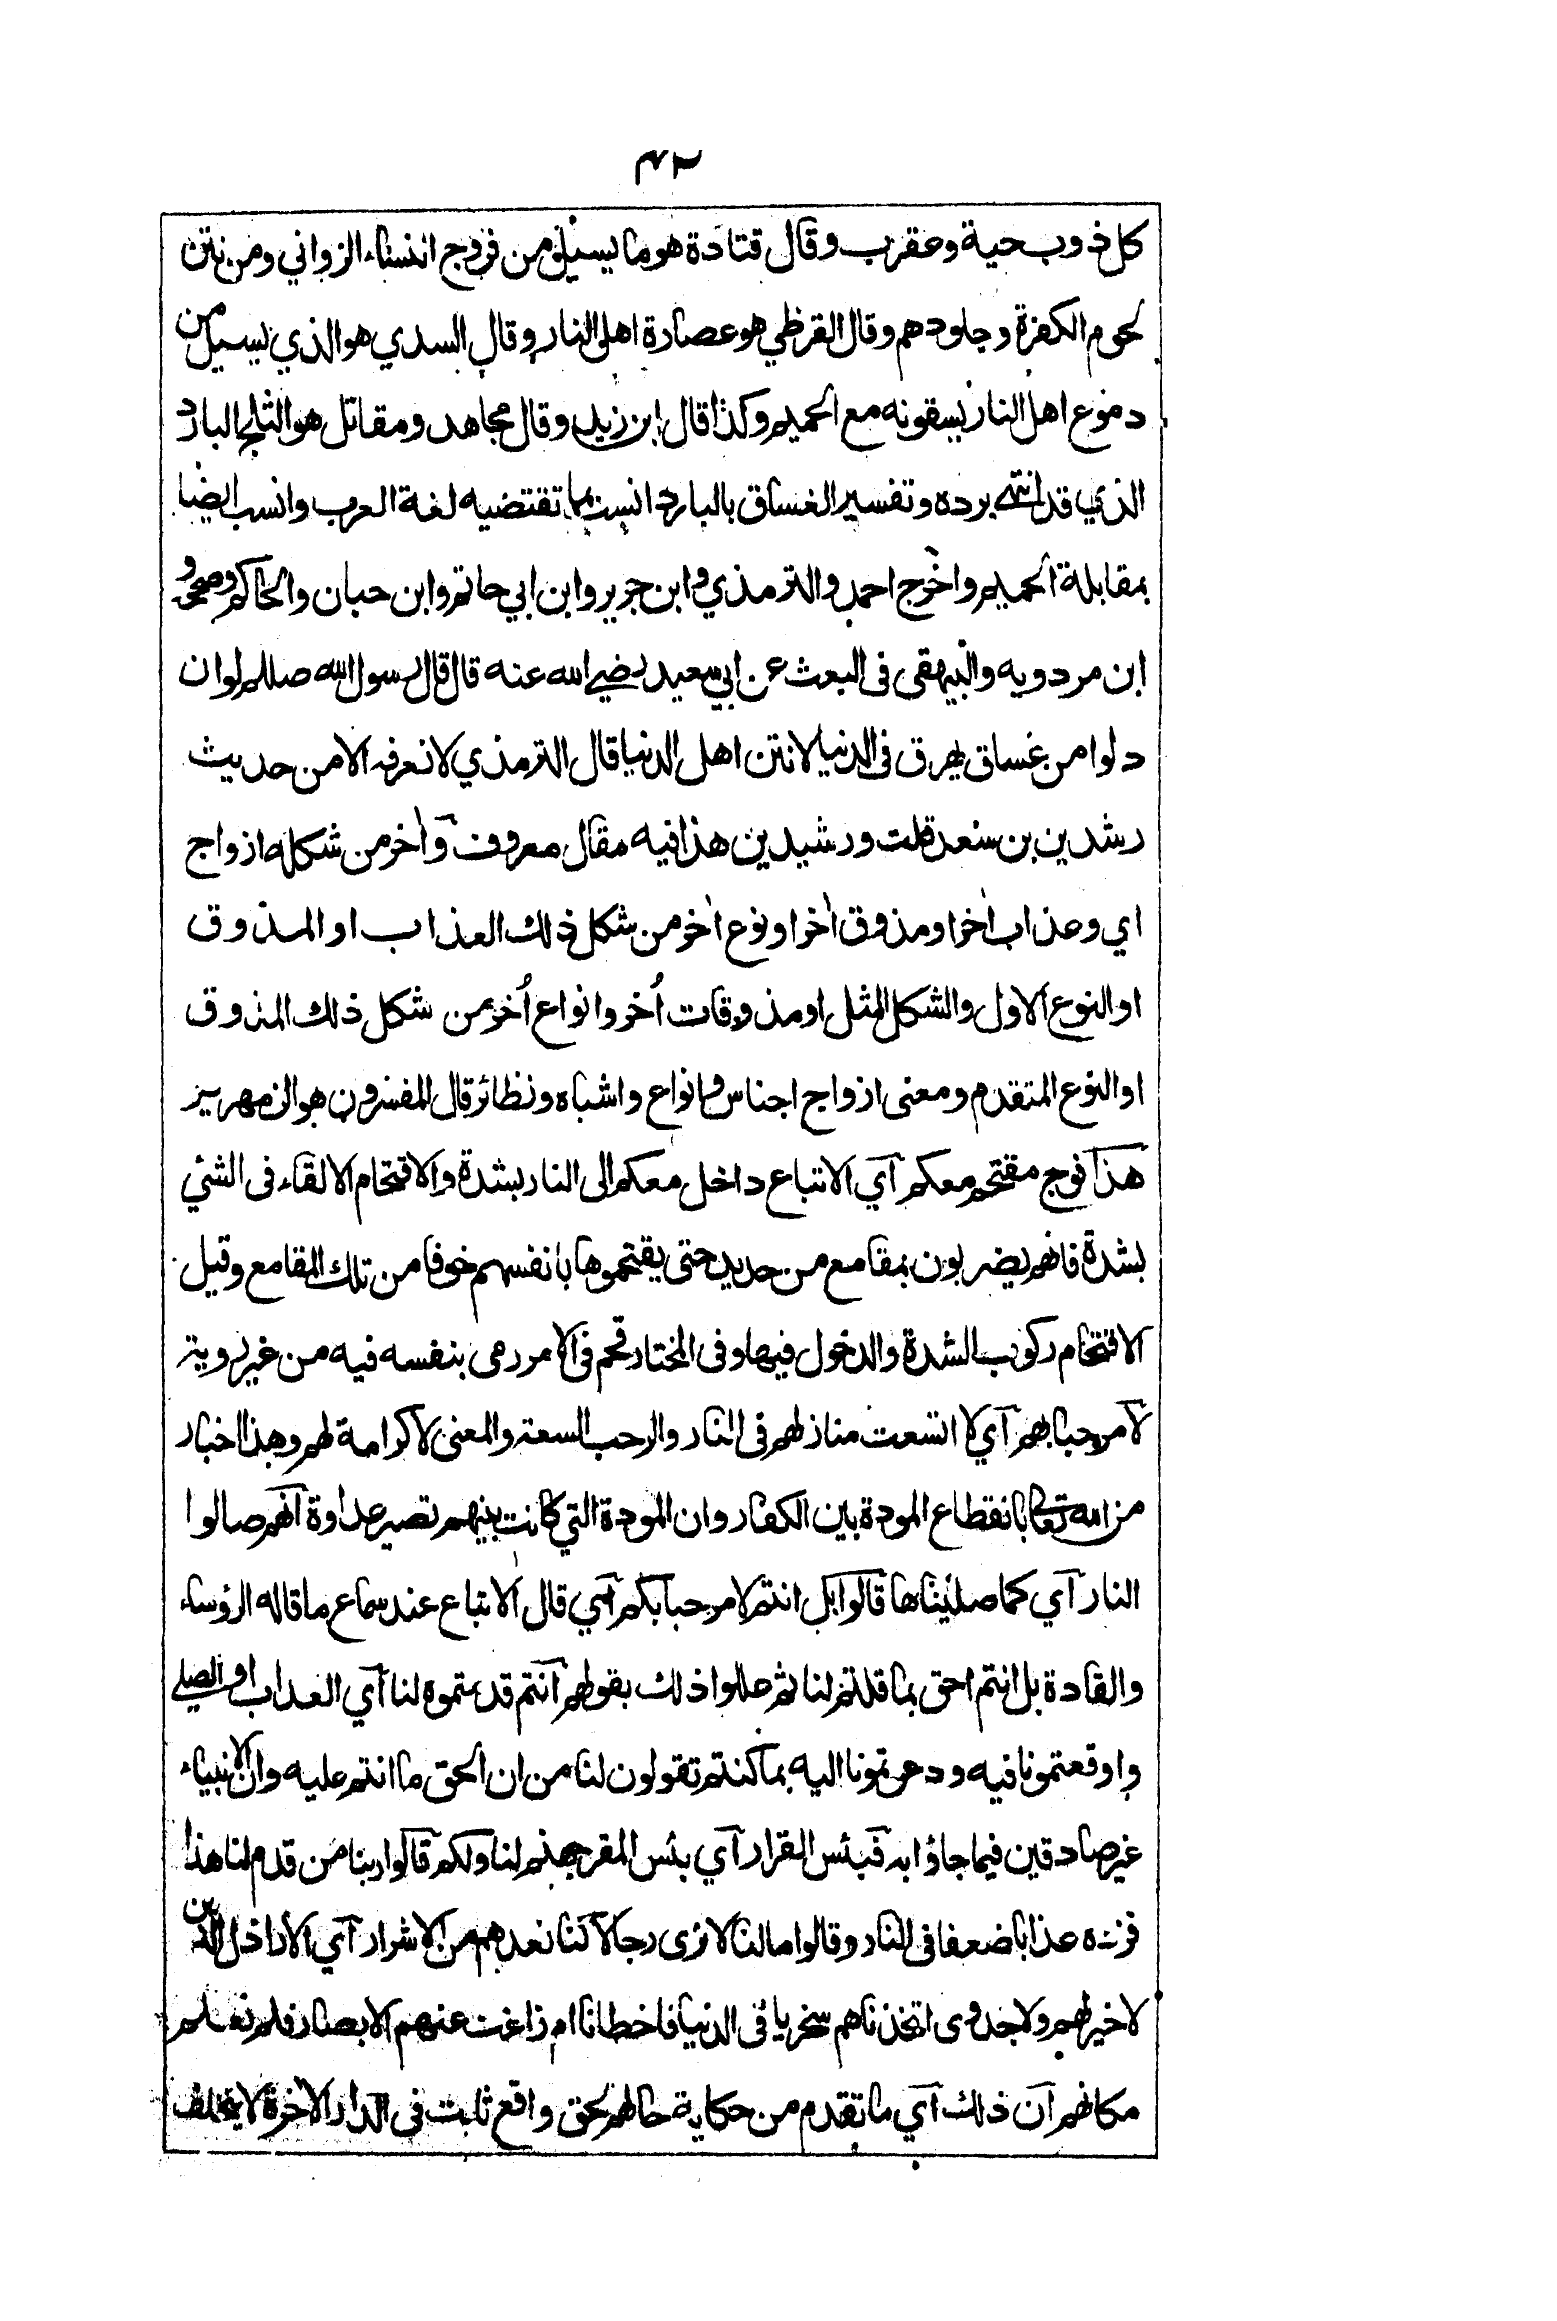 ٤٣
كل ذوب حية وعقرب وقال قتادة هو ما يسيل من فروج النساء الزواني ومن نتن
لحوم الكفرة وجلودهم وقال القرظي هو عصارة اهل النار وقال السدي هو الذي يسيل من
دموع اهل النار يسقونه مع الحميم وكذا قال ابن زيد وقال مجاهد ومقاتل هو الثلج البارد
الذي قد انتهى برده وتفسير الغساق بالبارد انسب بما تقتضيه لغة العرب وانسب ايضا
بمقابلة الحميم واخرج احمد والترمذي وابن جرير وابن ابي حاتم وابن حبان والحاكم وصححه و
ابن مردويه والبيهقي في البعث عن ابي سعيد رضي الله عنه قال قال رسول الله صللم لو ان
دلوا من غساق يهرق في الدنيا لانتن اهل الدنيا قال الترمذي لا نعرفه الا من حديث
رشدين بن سعد قلت ورشيدين هذا فيه مقال معروف وَاٰخر من شكله ازواج
اي وعذاب اٰخر او مذوق اٰخر او نوع اٰخر من شكل ذلك العذاب او المذوق
او النوع الاول والشكل المثل او مذوقات اُخر وانواع اُخر من شكل ذلك المذوق
او النوع المتقدم ومعنى ازواج اجناس وانواع واشباه ونظائر قال المفسرون هو الزمهرير
هذا فوج مقتحم معكم اي الاتباع داخل معكم الى النار بشدة والاقتحام الالقاء في الشئي
بشدة فانهم يضربون بمقامع من حديد حتى يقتحموها بانفسهم خوفا من تلك المقامع وقيل
الاقتحام ركوب الشدة والدخول فيها وفي المختار قحم في الامر رمى بنفسه فيه من غير روية
لا مرحبا بهم اي لا اتسعت منازلهم في النار والرحب السعة والمعنى لا كرامة لهم وهذا اخبار
من الله تعالى بانقطاع المودة بين الكفار وان المودة التي كانت بينهم تصير عداوة انهم صالوا
النار اي كما صليناها قالوا بل انتم لا مرحبا بكم اي قال الاتباع عند سماع ما قاله الرؤساء
والقادة بل انتم احق بما قلتم لنا ثم عللوا ذلك بقولهم انتم قدمتموه لنا اي العذاب او الصلي
واوقعتمونا فيه ودعوتمونا اليه بما كنتم تقولون لنا من ان الحق ما انتم عليه وان الانبياء
غير صادقين فيما جاؤا به فبئس القرار اي بئس المقر جهنم لنا ولكم قالوا ربنا من قدم لنا هذا
فزده عذابا ضعفا في النار وقالوا ما لنا لا نرى رجالا كنا نعدهم من الاشرار اي الاراذل الذين
لا خير لهم ولا جدوى اتخذناهم سخريا في الدنيا فاخطانا ام زاغت عنهم الابصار فلم نعلم
مكانهم ان ذلك اي ما تقدم من حكاية حالهم لحق واقع ثابت في الدار الاخرة لا يتخلف